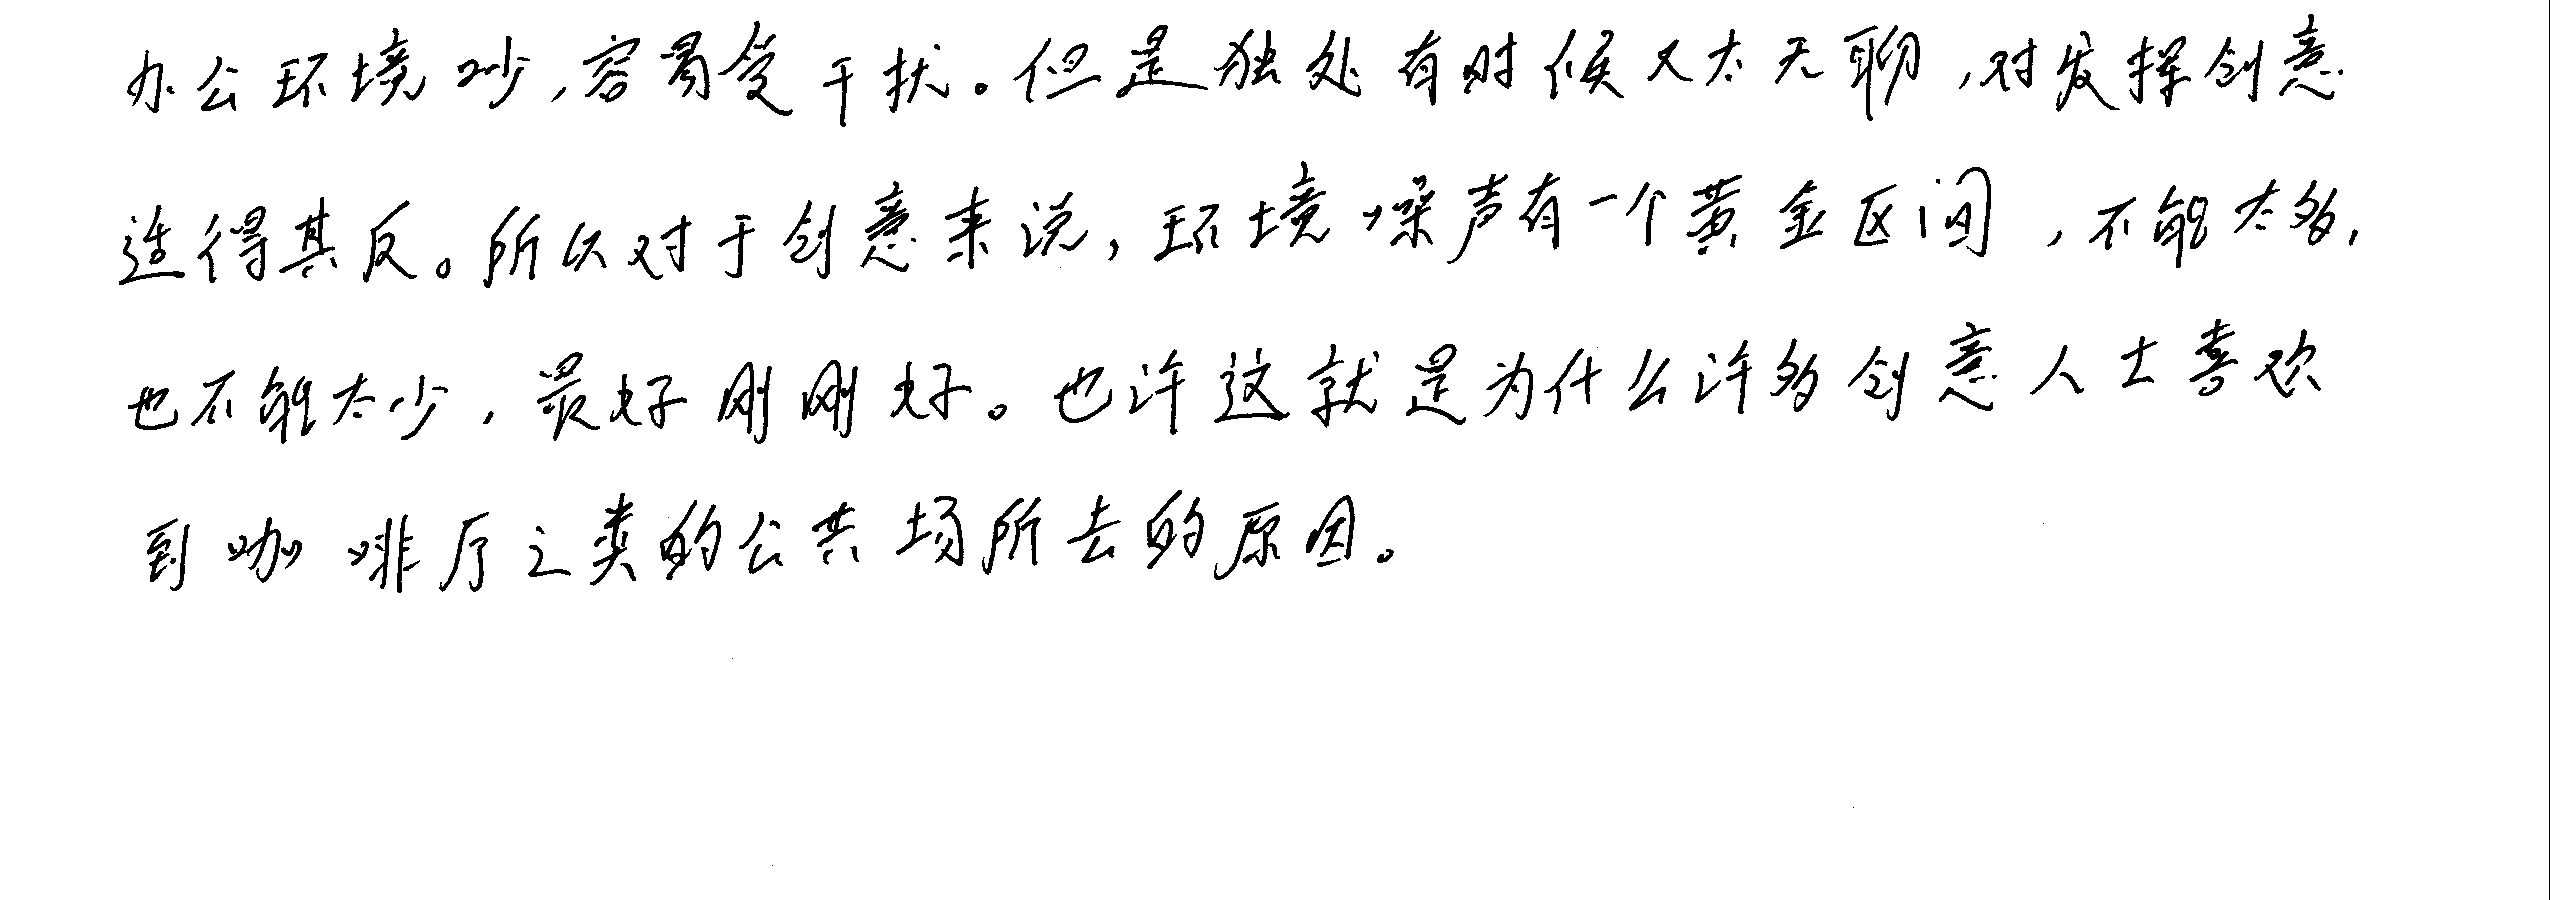 办公环境吵,容易受干扰。但是独处有时候又太无聊,对发挥创意
适得其反。所以对于创意来说,环境噪声有一个黄金区间,不能太多,
也不能太少,最好刚刚好。也许这就是为什么许多创意人士喜欢
到咖啡厅之类的公共场所去的原因。